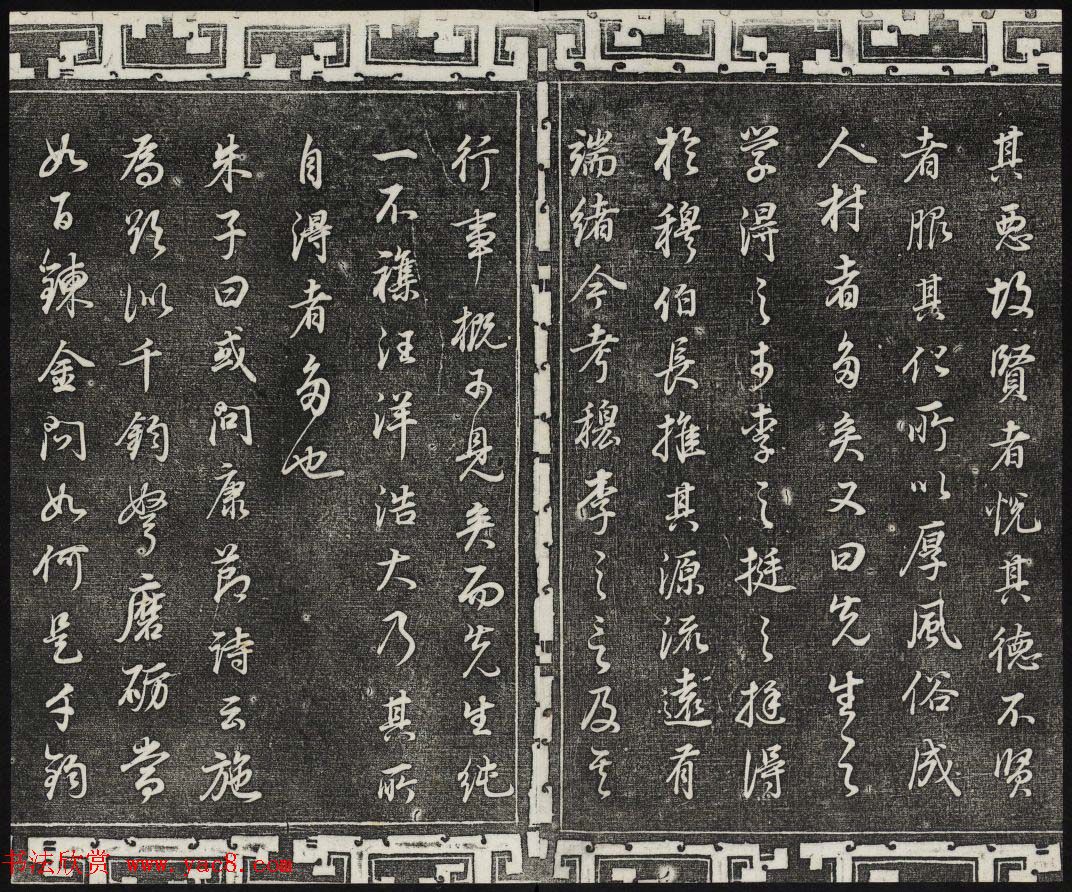 其惡故賢者悅其德不賢
者服其化所以厚風俗成
人材者多矣又曰先生之
学得之于李之挺之挺得
於穆伯長推其源流遠有
端緒今考穆李之言及其
行事概可見矣而先生純
一不襍汪洋浩大乃其所
自得者多也
朱子曰或問康節詩云施
為欲似千鈞弩磨礪當
如百鍊金問如何是千鈞
书法欣赏 www.yac8.com